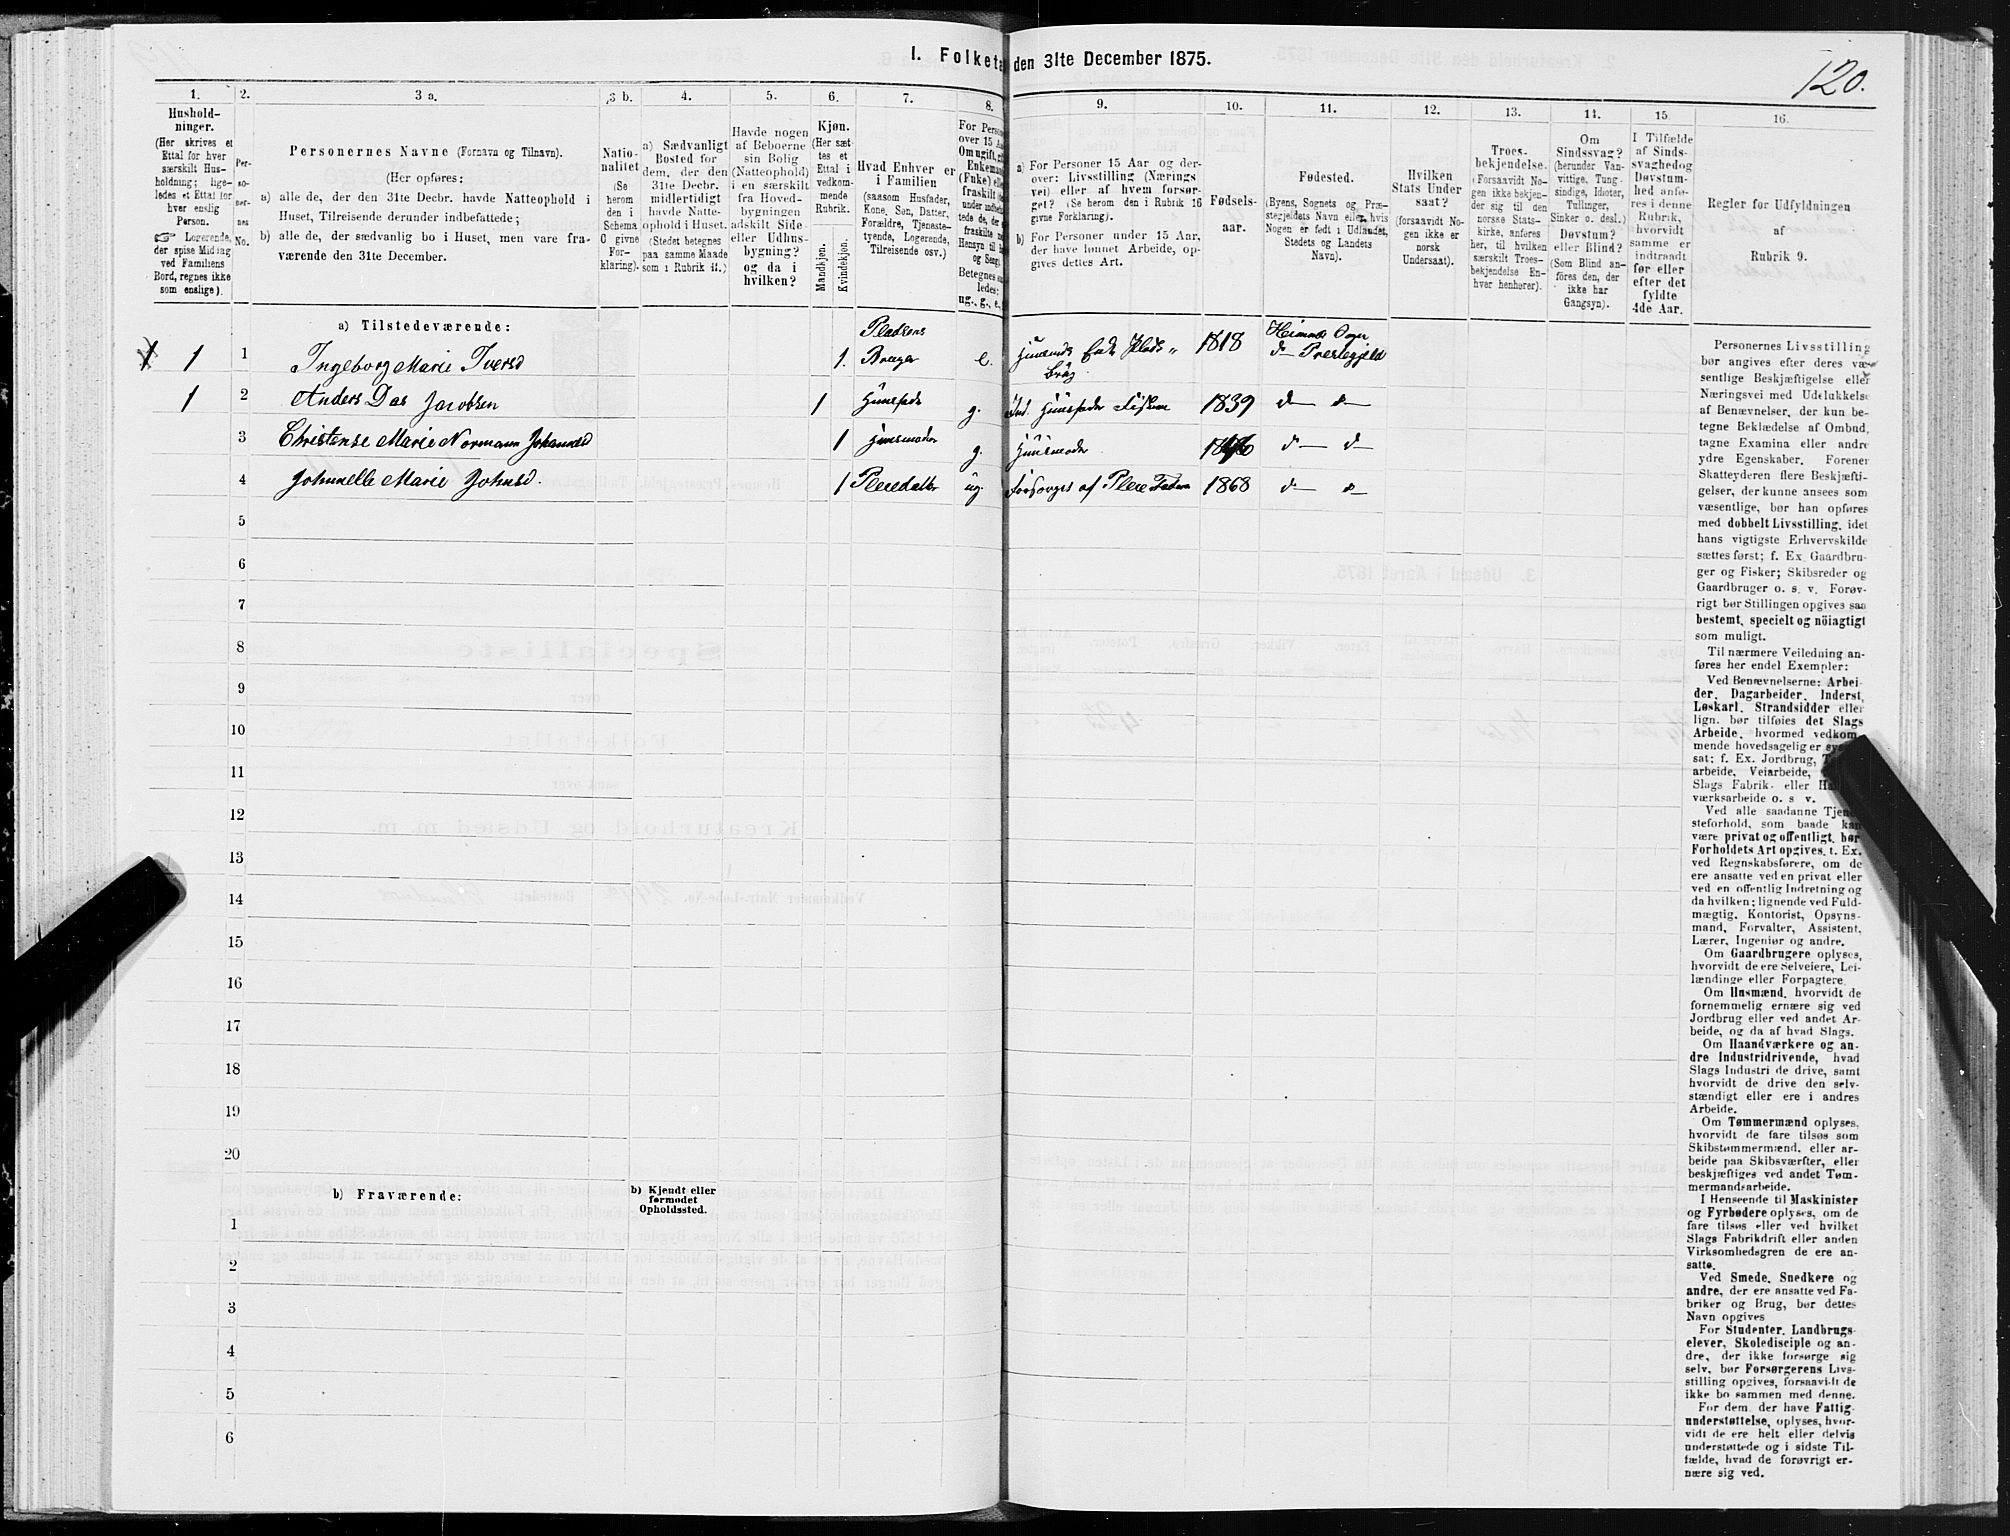 I. Folketa den 31te December 1875.
120.
1.
Hushold-
ninger.
(Her skrives et
Ettal for hver
særskilt Hus-
holdning; lige-
ledes et Ettal for
hver enslig
Person.
☞ Logerende,
der spise Middag
ved Familiens
Bord, regnes ikke
som enslige).
2.
Per-
so-
ner-
nes
No.
3 a.
Personernes Navne (Fornavn og Tilnavn).
(Her opføres:
a) alle de, der den 31te Decbr. havde Natteophold i
Huset, Tilreisende derunder indbefattede;
b) alle de, der sædvanlig bo i Huset, men vare fra-
værende den 31te December.
3 b.
Natio-
nalitet
(Se
herom
den i
Schema
C givne
For-
klaring).
4.
a) Sædvanligt
Bosted for
dem, der den
31te Decbr.
midlertidigt
havde Natte-
ophold i Huset.
(Stedet betegnes
paa samme Maade
som i Rubrik 11.)
5.
Havde nogen
af Beboerne
sin Bolig
(Natteophold)
i en særskilt
fra Hoved-
bygningen
adskilt Side-
eller Udhus-
bygning?
og da i
hvilken?
6.
Kjøn.
(Her sæt-
tes et
Ettal i
vedkom-
mende
Rubrik.
Mandkjøn.
Kvindekjøn.
7.
Hvad Enhver er
i Familien
(saasom Husfader,
Kone, Søn, Datter,
Forældre, Tjeneste-
tyende, Logerende,
Tilreisende osv.)
8.
For Person
over 15 Aa
Om ugift, gi
Enkeman
(Enke) elle
fraskilt
Betegnes saa
ledes:
ug., g., e.,
9.
a) For Personer 15 Aar og der-
over: Livsstilling (Nærings
vei) eller af hvem forsør-
get? (Se herom den i Rubrik 16
givne Forklaring).
b) For Personer under 15 Aar,
der have lønnet Arbeide, op-
gives dettes Art.
10.
Fødsels-
aar.
11.
Fødested.
(Byens, Sognets og Præ-
stegjeldets Navn eller, hvis
Nogen er født i Udlandet,
Stedets og Landets
Navn).
12.
Hvilken
Stats Under
saat?
(forsaavidt No-
gen ikke er
norsk
Undersaat).
13.
Troes-
bekjendelse.
(Forsaavidt No-
gen ikke bekjen-
der sig til den
norske Stats-
kirke, anføres
her, til hvilken
særskilt Troes-
bekjendelse En-
hver henhører).
14.
Om
Sindssvag?
(herunder Van-
vittige, Tung-
sindige, Idioter,
Tullinger,
Sinker o. desl.)
Døvstum?
eller Blind?
(Som Blind an-
føres den, der
ikke har
Gangsyn).
15
I Tilfælde
af Sinds-
svaghed og
Døvstum-
hed anfø-
res i denne
Rubrik,
hvorvidt
samme er
indtraadt
før eller
efter det
fyldte
4de Aar.
16.
Regler for Udfyldningen
af
Rubrik 9.
a) Tilstedeværende:
1 1 1 Ingeborg Marie Iversd 1. Pladsens Bruger e. Huusmds Enke Plads- Brug 1818 Heimnes Sogn d— Prestegjeld
1 2 Anders Das Jacobsen 1 Huusfade g. Ind. Huusfader Fisker 1839 d— d—
3 Christense Marie Normann Johansd 1 Huusmoder g. Huusmoder 1846 d— d—
4 Johnnelle Marie Johnsd. 1 Pleiedatter ug. Forsørget af Pleie Fader 1868 d— d—
5
6
7
8
9
10
11
12
13
14
15
16
17
18
19
20
b) Fraværende:
b) Kjendt eller
formodet
Opholdssted.
1
2
3
4
5
6
Personernes Livsstilling
bør angives efter deres væ-
sentlige Beskjæftigelse eller
Næringsvei med Udelukkelse
af Benævnelser, der kun be-
tegne Beklædelse af Ombud,
tagne Examina eller andre
ydre Egenskaber. Forener
Skatteyderen flere Beskjæfti-
gelser, der kunne ansees som
væsentlige, bør han opføres
med dobbelt Livsstilling, idet
hans vigtigste Erhvervskilde
sættes først; f. Ex. Gaardbru-
ger og Fisker; Skibsreder og
Gaardbruger o. s. v. Forøv-
rigt bør Stillingen opgives saa
bestemt, specielt og nöiagtigt
som muligt.
Til nærmere Veiledning an-
føres her endel Exempler:
Ved Benævnelserne: Arbei-
der, Dagarbeider, Inderst,
Løskarl, Strandsidder eller
lign. bør tilføies det Slags
Arbeide, hvormed vedkom-
mende hovedsagelig er syssel-
sat; f. Ex. Jordbrug,
arbeide, Veiarbeide,
Slags Fabrik- eller
værksarbeide o. s v.
Ved alle saadanne Tjene-
steforhold, som baade kan
være privat og offentligt, bør
Forholdets Art opgives, t. Ex.
ved Regnskabsførere, om de
ere ansatte ved en privat eller
ved en offentlig Indretning og
da hvilken; lignende ved Fuld-
mægtig, Kontorist, Opsyns-
mand, Forvalter, Assistent,
Lærer, Ingeniør og andre.
Om Gaardbrugere oplyses,
hvorvidt de ere Selveiere, Lei-
lændinge eller Forpagtere.
Om Husmænd, hvorvidt de
fornemmelig ernære sig ved
Jordbrug eller ved andet Ar-
beide, og da af hvad Slags.
Om Haandværkere og an-
dre Industridrivende, hvad
Slags Industri de drive, samt
hvorvidt de drive den selv-
stændigt eller ere i andres
Arbeide.
Om Tømmermænd oplyses,
hvorvidt de fare tilsøs som
Skibstømmermænd, eller ar-
beide paa Skibsværfter, eller
beskjæftiges ved andet Tøm-
mermandsarbeide.
I Henseende til Maskinister
og Fyrbødere oplyses, om de
fare tilsøs eller ved hvilket
Slags Fabrikdrift eller anden
Virksomhedsgren de ere an-
satte.
Ved Smede, Snedkere og
andre, der ere ansatte ved Fa-
briker og Brug, bør dettes
Navn opgives
For Studenter, Landbrugs-
elever, Skoledisciple og an-
dre, der ikke forsørge sig
selv, bør Forsørgerens Livs-
stilling opgives, forsaavidt de
ikke bo sammen med denne.
For dem der have Fattig-
understøttelse, oplyses, hvor-
vidt de ere helt eller delvis
understøttede og i sidste Til-
fælde, hvad de forøvrigt er-
nære sig ved.